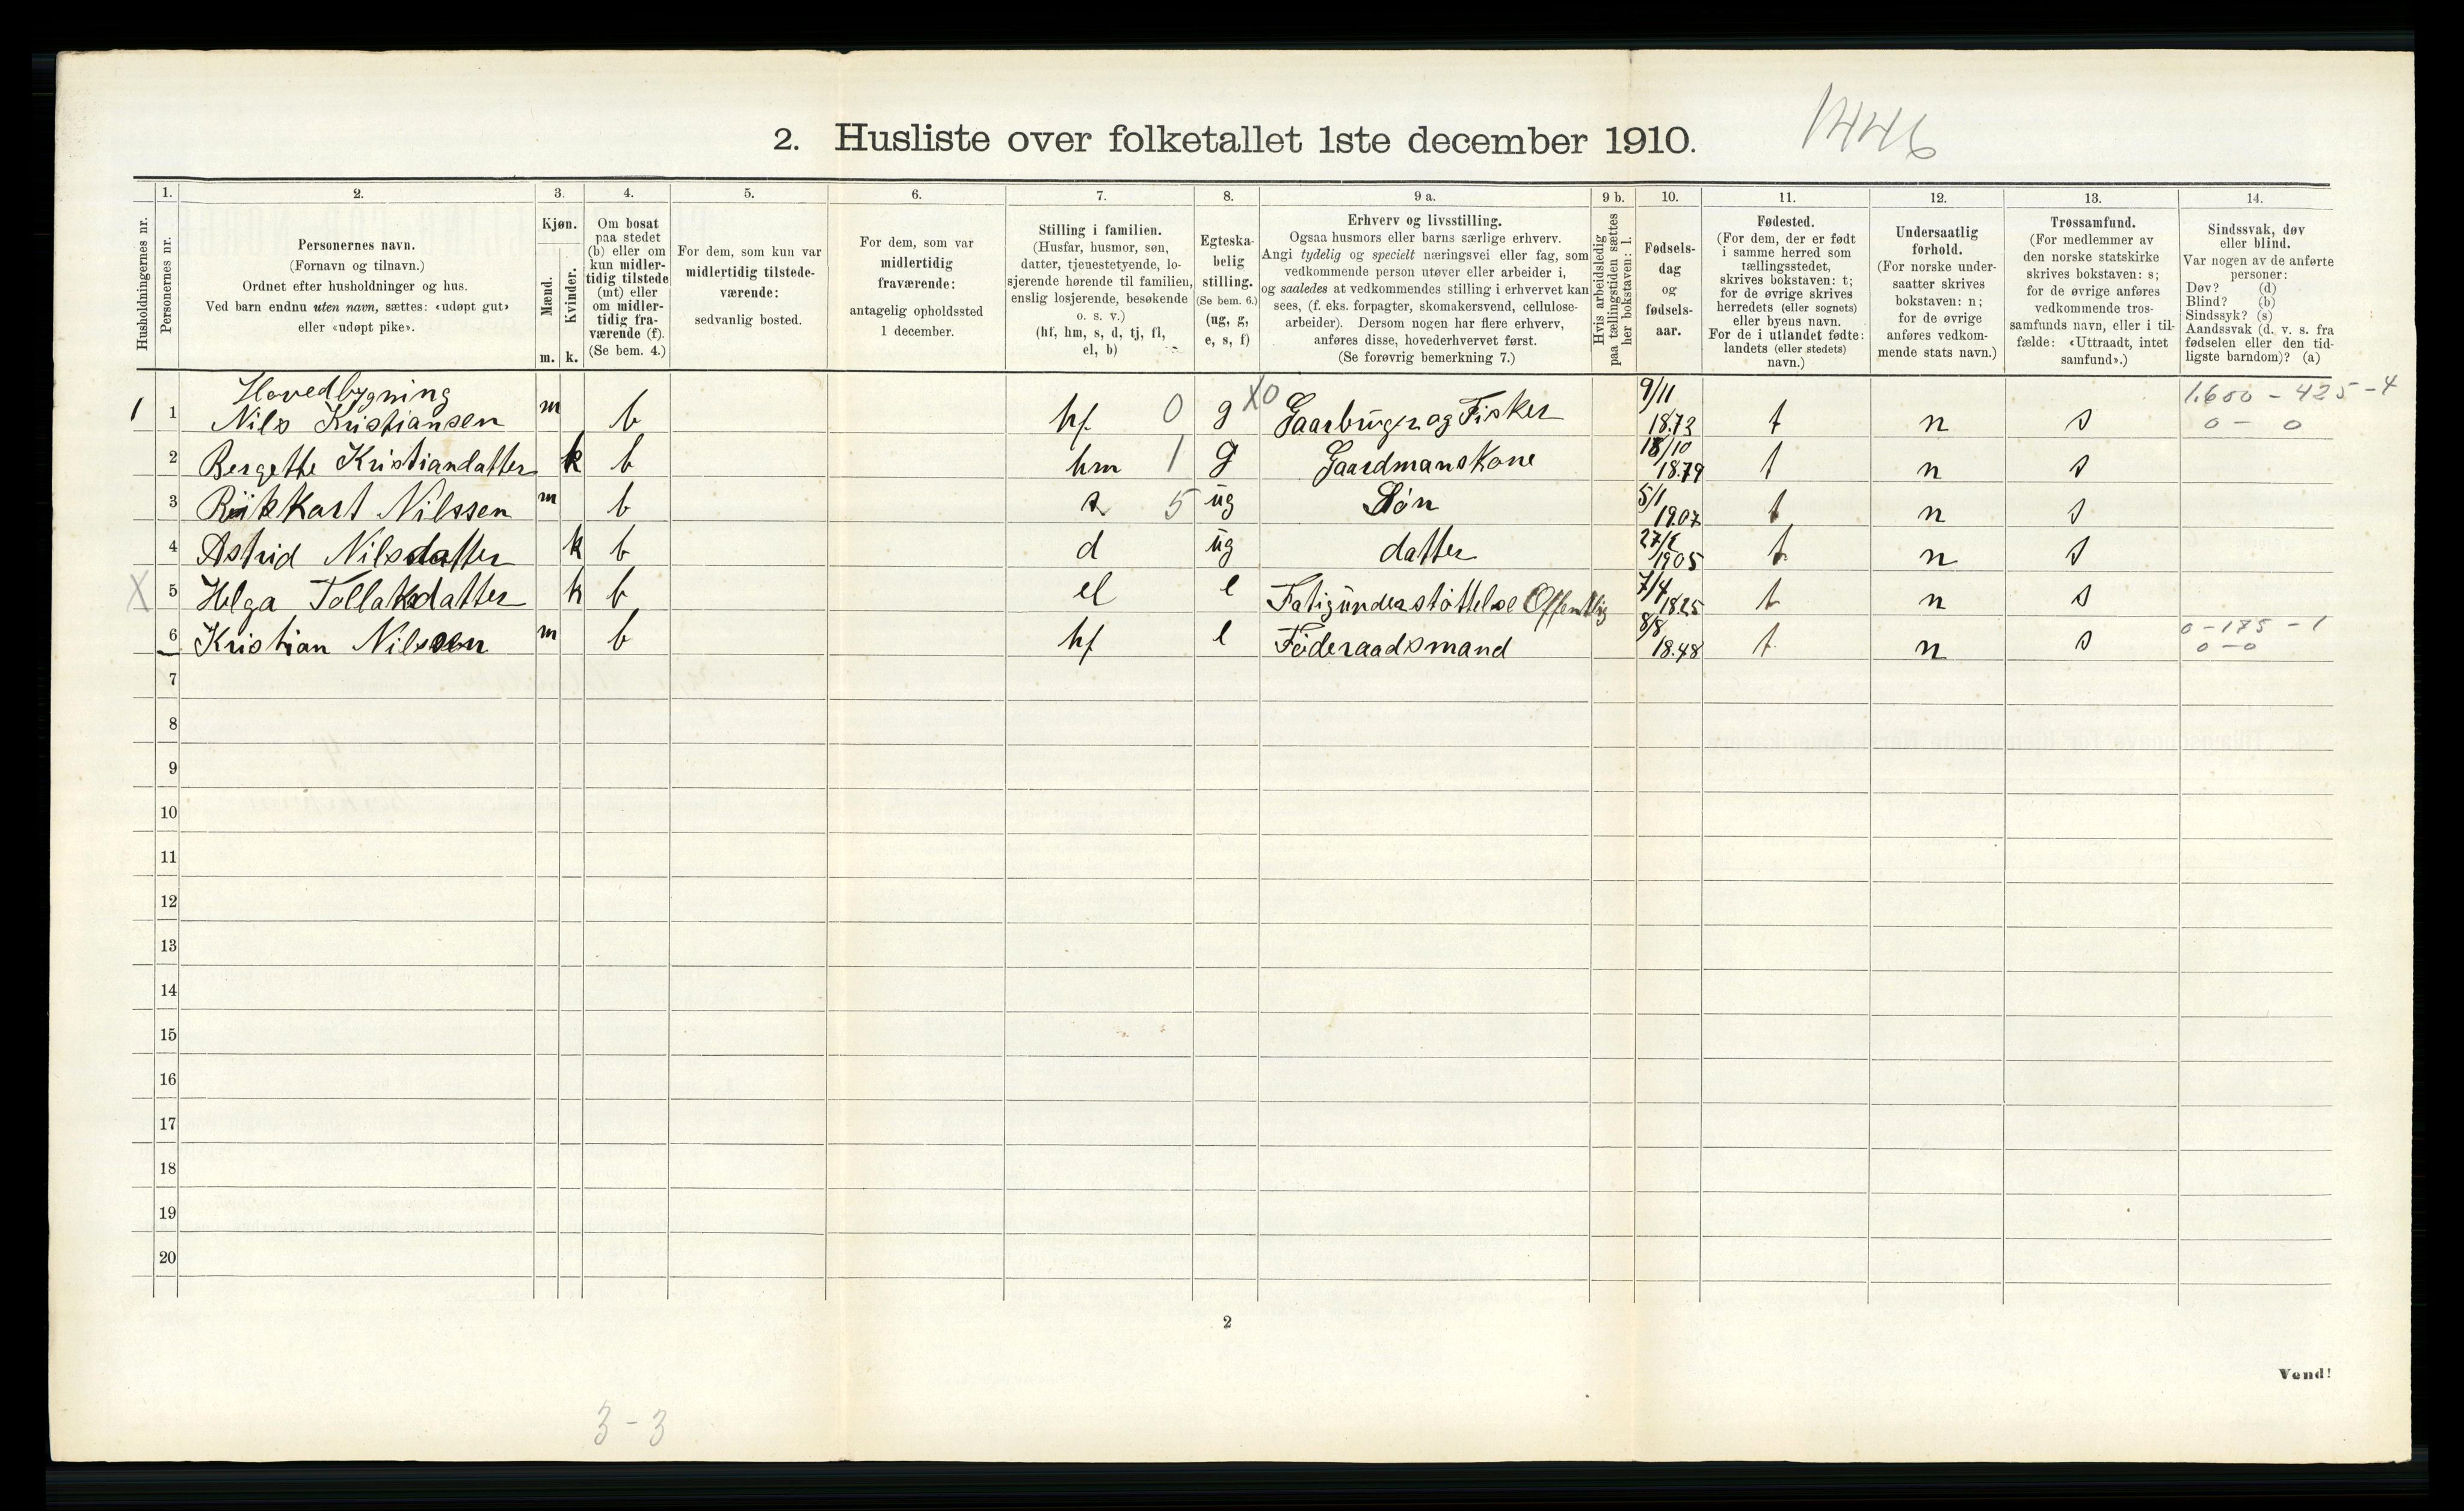 1446
2. Husliste over folketallet 1ste december 1910.
Husholdningernes nr.
1.
Personernes nr.
2.
Personernes navn.
(Fornavn og tilnavn.)
Ordnet efter husholdninger og hus.
Ved barn endnu uten navn, sættes: «udøpt gut»
eller «udøpt pike».
3.
Kjøn.
Mænd.
Kvinder.
m. k.
4.
Om bosat
paa stedet
(b) eller om
kun midler-
tidig tilstede
(mt) eller
om midler-
tidig fra-
værende (f).
(Se bem. 4.)
5.
For dem, som kun var
midlertidig tilstede-
værende:
sedvanlig bosted.
6.
For dem, som var
midlertidig
fraværende:
antagelig opholdssted
1 december.
7.
Stilling i familien.
(Husfar, husmor, søn,
datter, tjenestetyende, lo-
sjerende hørende til familien,
enslig losjerende, besøkende
o. s. v.)
(hf, hm, s, d, tj, fl,
el, b)
8.
Egteska-
belig
stilling.
(Se bem. 6.)
(ug, g,
e, s, f)
9 a.
Erhverv og livsstilling.
Ogsaa husmors eller barns særlige erhverv.
Angi tydelig og specielt næringsvei eller fag, som
vedkommende person utøver eller arbeider i,
og saaledes at vedkommendes stilling i erhvervet kan
sees, (f. eks. forpagter, skomakersvend, cellulose-
arbeider). Dersom nogen har flere erhverv,
anføres disse, hovederhvervet først.
(Se forøvrig bemerkning 7.)
9 b.
Hvis arbeidsledig
paa tællingstiden sættes
her bokstaven: l.
10.
Fødsels-
dag
og
fødsels-
aar.
11.
Fødested.
(For dem, der er født
i samme herred som
tællingsstedet,
skrives bokstaven: t;
for de øvrige skrives
herredets (eller sognets)
eller byens navn.
For de i utlandet fødte:
landets (eller stedets)
navn.)
12.
Undersaatlig
forhold.
(For norske under-
saatter skrives
bokstaven: n;
for de øvrige
anføres vedkom-
mende stats navn.)
13.
Trossamfund.
(For medlemmer av
den norske statskirke
skrives bokstaven: s;
for de øvrige anføres
vedkommende tros-
samfunds navn, eller i til-
fælde: «Uttraadt, intet
samfund».)
14.
Sindssvak, døv
eller blind.
Var nogen av de anførte
personer:
Døv? (d)
Blind? (b)
Sindssyk? (s)
Aandssvak (d. v. s. fra
fødselen eller den tid-
ligste barndom)? (a)
Hovedbygning
1 1 Nils Kristiansen m b hf 0 g X0 Gaarbruger og Fisker 9/11 18.73 t n s 1.600 - 425 - 4
0 - 0
2 Bergette Kristiandatter k b hm 1 g Gaardmanskone 18/10 18.79 t n s
3 Rikkart Nilssen m b s 5 ug Søn 5/1 19.07 t n s
4 Astrid Nilsdatter k b d ug datter 1905 t n s
X 5 Helga Tollaksdatter k b el e Fatigunderstøttelse Offentlig 7/4 18.25 t n s
6 Kristian Nilssen m b hf e Føderaadsmand 8/8 18.48 t n s 0 - 175 - 1
0 - 0
7
8
9
10
11
12
13
14
15
16
17
18
19
20
2
Vend!
3 - 3